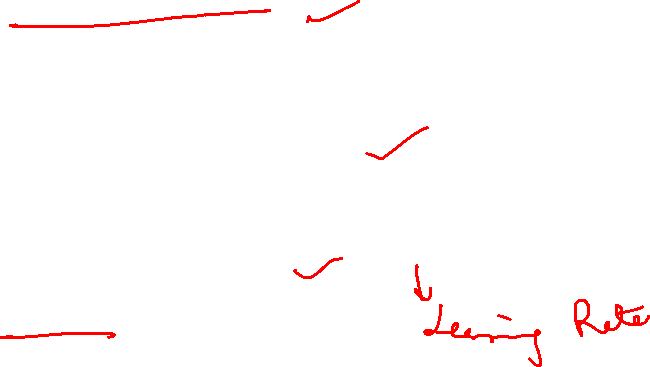 Learning Rate